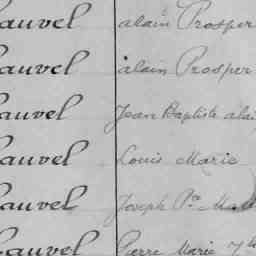 auvel alain Prosper
auvel alain Prosper
auvel Jean Baptiste alai
auvel Louis Marie
auvel Joseph Pre
auvel Pierre Marie